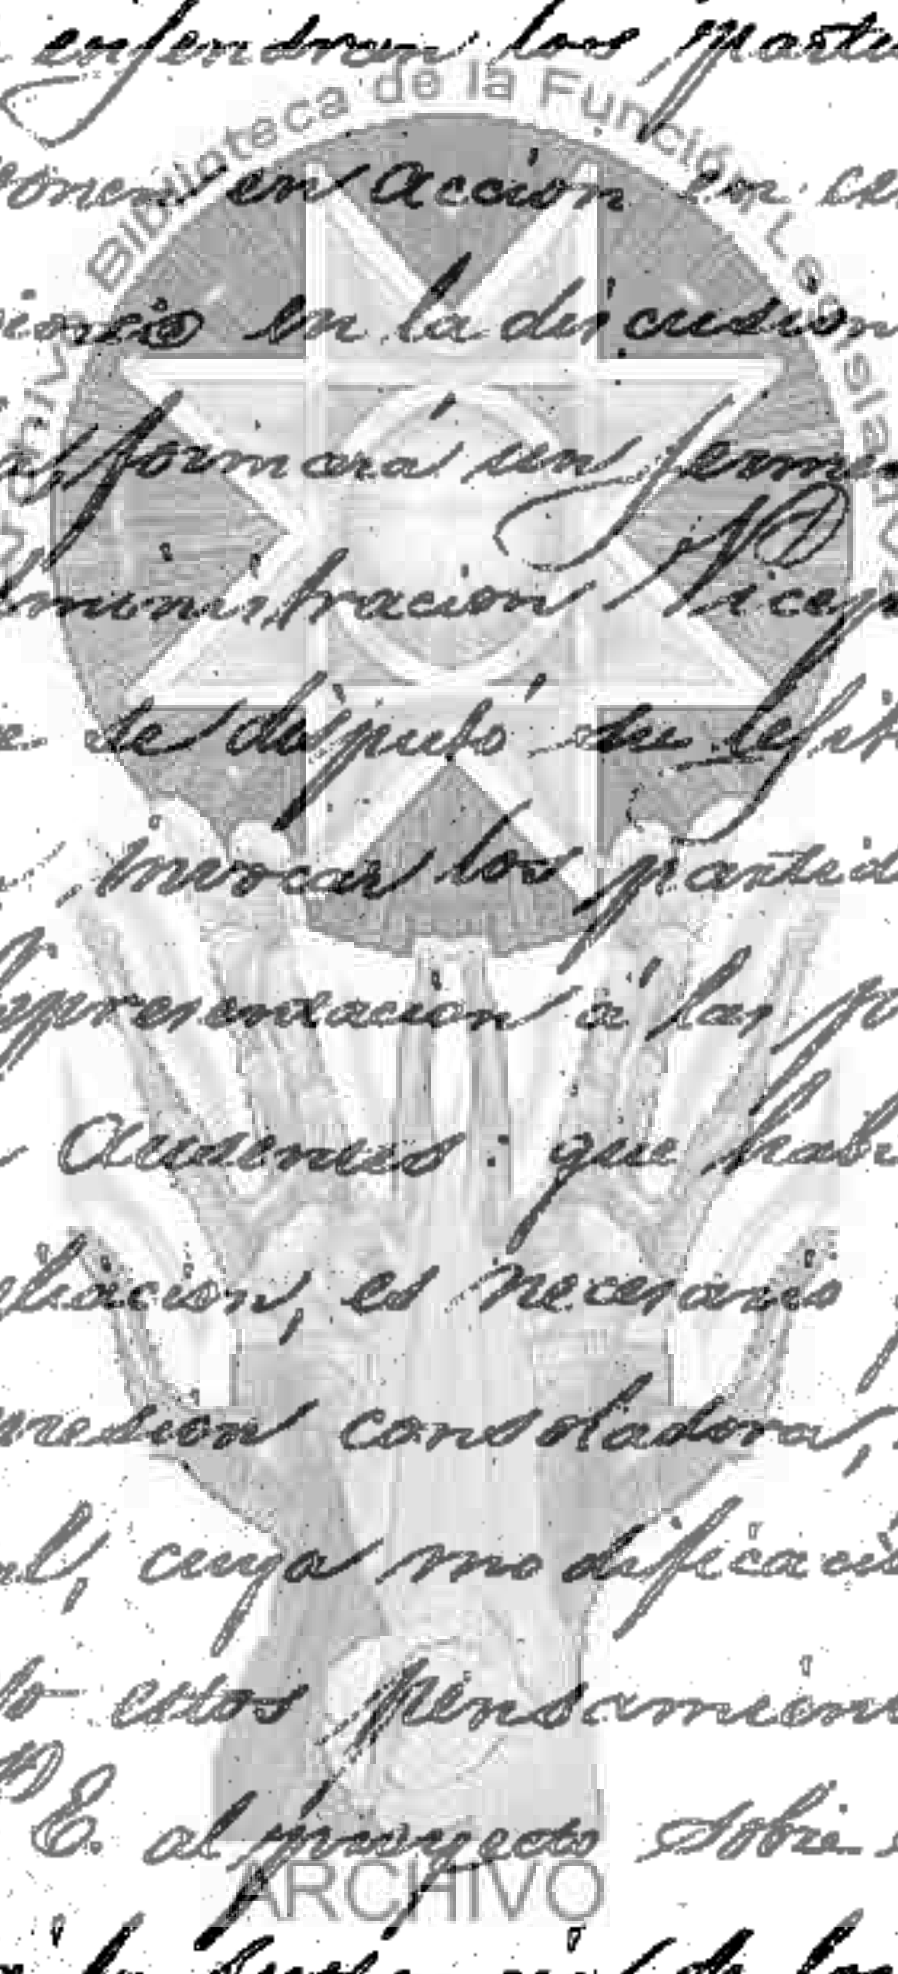 enjendran los parti
Biblioteca de la Función Legislativa
ponen en acción en
en la discusion
formará un ferme
dministracion Vicep
se disputó su lejit
invocar los partid
representacion á las
ausentes: que habi
iliacion, es necesario
presion consoladora,
cuya modificació
estos pensamient
E. al proyecto sobre
ARCHIVO
de los